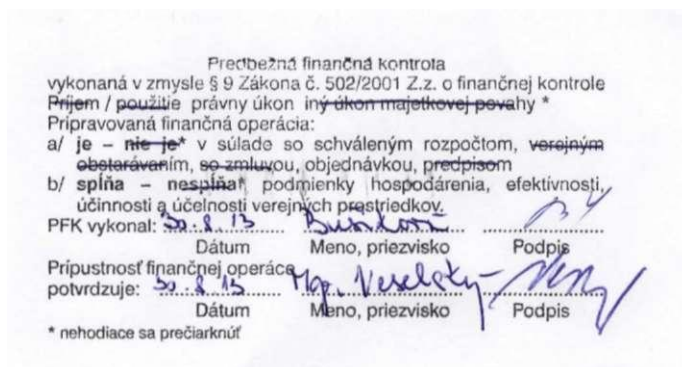 Predbežná finančná kontrola
vykonaná v zmysle § 9 Zákona č. 502/2001 Z.z. o finančnej kontrole
Príjem / použitie právny úkon iný úkon majetkovej povahy *
Pripravovaná finančná operácia:
a/ je – nie je* v súlade so schváleným rozpočtom, verejným
obstarávaním, so zmluvou, objednávkou, predpisom
b/ spĺňa – nespĺňa* podmienky hospodárenia, efektívnosti,
účinnosti a účelnosti verejných prostriedkov.
PFK vykonal: 30.8.13
Dátum Meno, priezvisko Podpis
Prípustnosť finančnej operáce
potvrdzuje: 30.8.13 Mgr. Veselský
Dátum Meno, priezvisko Podpis
* nehodiace sa prečiarknúť